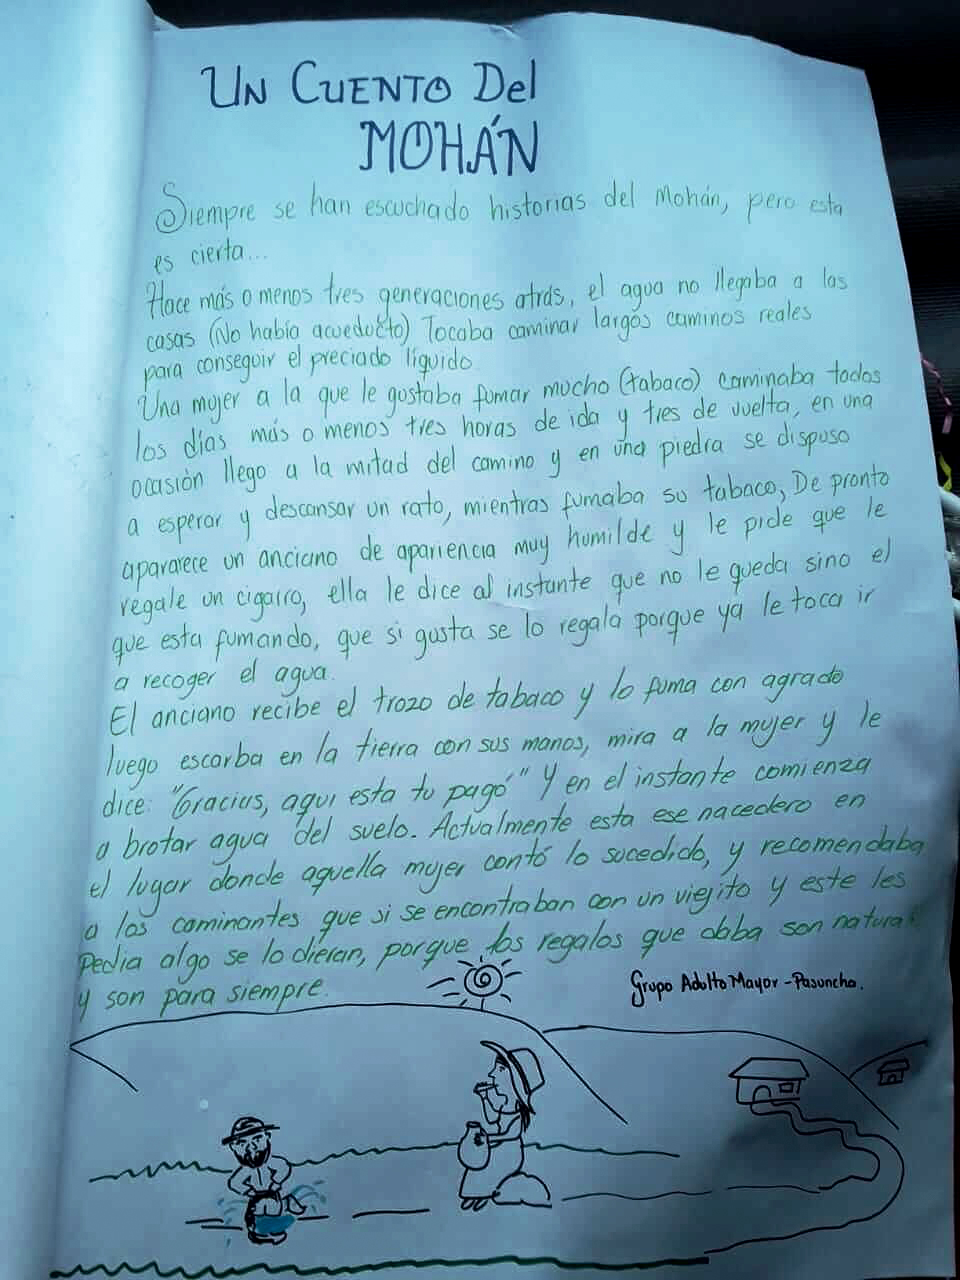 Un Cuento Del
MOHÁN
Siempre se han escuchado historias del Mohán, pero esta
es cierta...
Hace más o menos tres generaciones atrás, el agua no llegaba a las
casas (No había acueducto) Tocaba caminar largos caminos reales
para conseguir el preciado líquido.
Una mujer a la que le gustaba fumar mucho (tabaco) caminaba todos
los días más o menos tres horas de ida y tres de vuelta, en una
ocasión llego a la mitad del camino y en una piedra se dispuso
a esperar y descansar un rato, mientras fumaba su tabaco, De pronto
apararece un anciano de apariencia muy humilde y le pide que le
regale un cigarro, ella le dice al instante que no le queda sino el
que esta fumando, que si gusta se lo regala porque ya le toca ir
a recoger el agua.
El anciano recibe el trozo de tabaco y lo fuma con agrado
luego escarba en la tierra con sus manos, mira a la mujer y le
dice: "Gracias, aqui esta tu pagó" Y en el instante comienza
a brotar agua del suelo. Actualmente esta ese nacedero en
el lugar donde aquella mujer contó lo sucedido, y recomendaba
a los caminantes que si se encontraban con un viejito y este les
Pedia algo se lo dieran, porque los regalos que daba son natural
y son para siempre.
Grupo Adulto Mayor - Pasuncha.